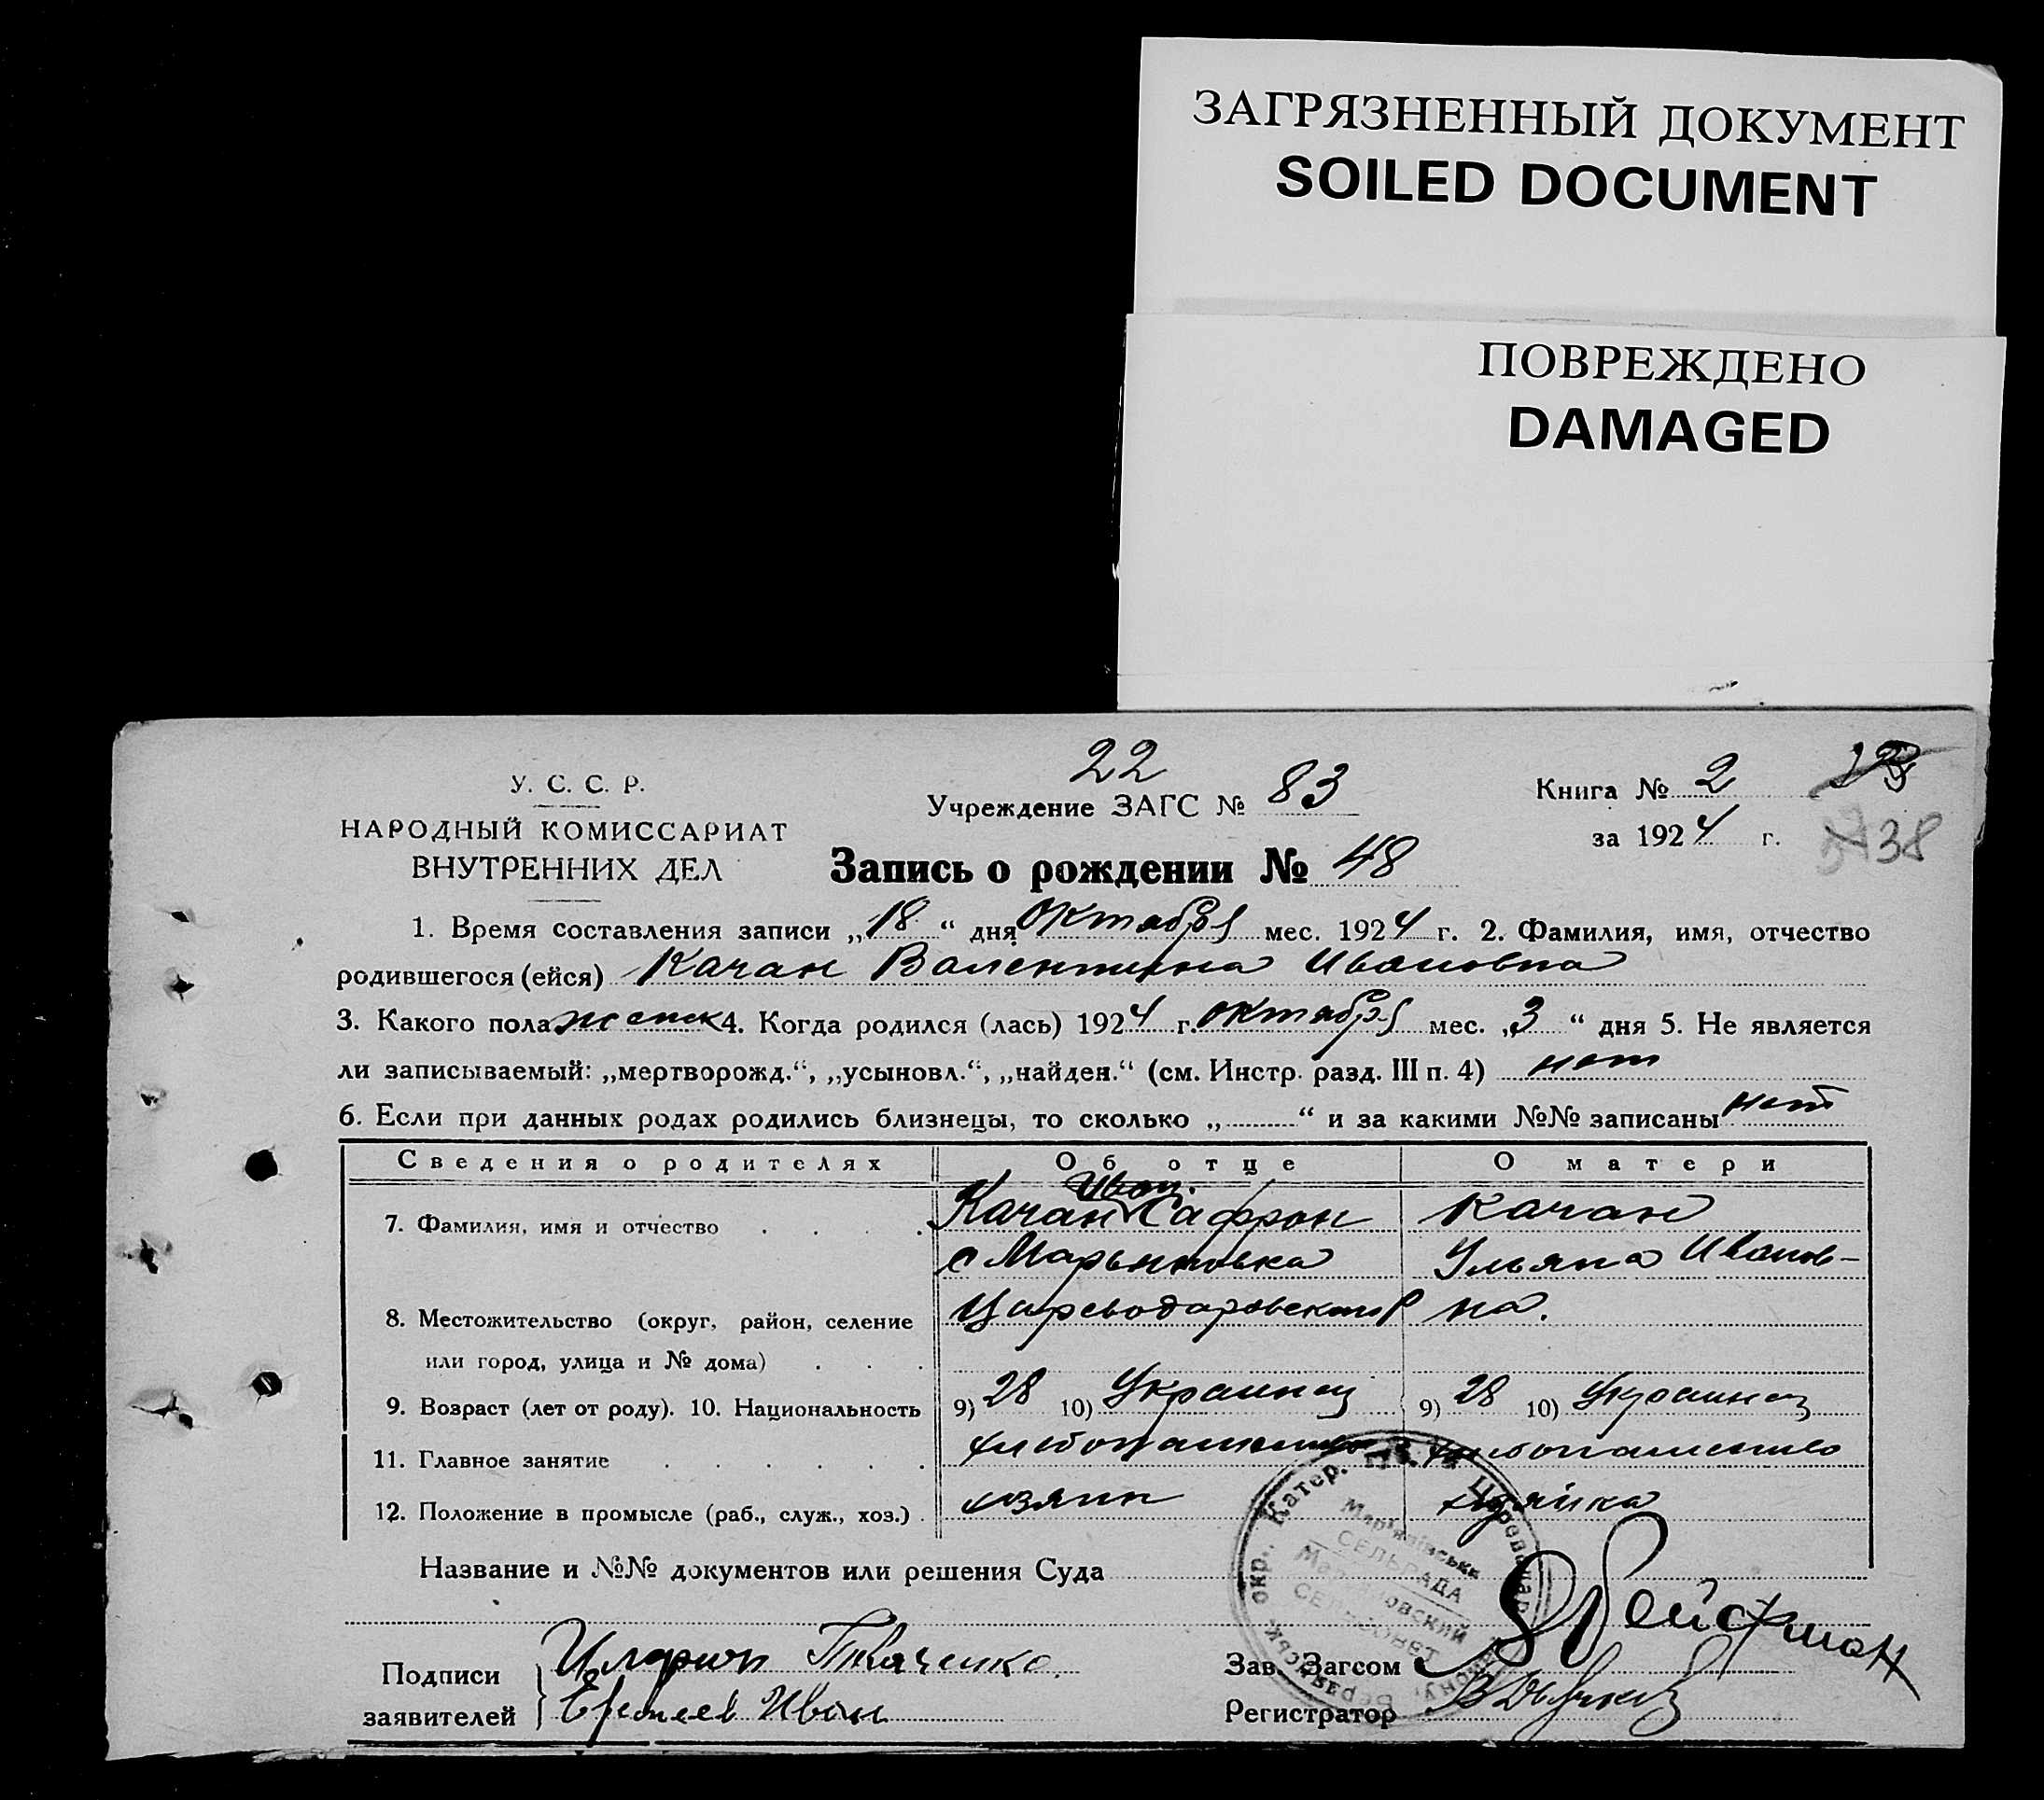 ЗАГРЯЗНЕННЫЙ ДОКУМЕНТ
SOILED DOCUMENT
ПОВРЕЖДЕНО
DAMAGED
У. С. С. Р.
НАРОДНЫЙ КОМИССАРИАТ
ВНУТРЕННИХ ДЕЛ
22
Учреждение ЗАГС № 83
Книга № 2
за 1924 г.
38
Запись о рождении № 48
1. Время составления записи „18“ дня октября мес. 1924 г. 2. Фамилия, имя, отчество
родившегося (ейся) Качан Валентина Ивановна
3. Какого пола женск 4. Когда родился (лась) 1924 г. октября мес. „3“ дня 5. Не является
ли записываемый: „мертворожд.“, „усыновл.“, „найден.“ (см. Инстр. разд. III п. 4) нет
6. Если при данных родах родились близнецы, то сколько „ “ и за какими №№ записаны нет
Сведения о родителях Об отце О матери
Иван.
7. Фамилия, имя и отчество Качан Сафрон Качан
с Марьяновка Ульяна Иванов-
8. Местожительство (округ, район, селение Цареводаровский Р на.
или город, улица и № дома)
9. Возраст (лет от роду). 10. Национальность 9) 28 10) Украинец 9) 28 10) Украинец
11. Главное занятие хлебопашество хлебопашество
12. Положение в промысле (раб., служ., хоз.) хозяин хозяйка
Название и №№ документов или решения Суда
Мар'янівська
СЕЛЬРАДА
Марьяновский
СЕЛЬСОВЕТ
Подписи Илларион Ткаченко.
заявителей Иван
Зав. Загсом
Регистратор